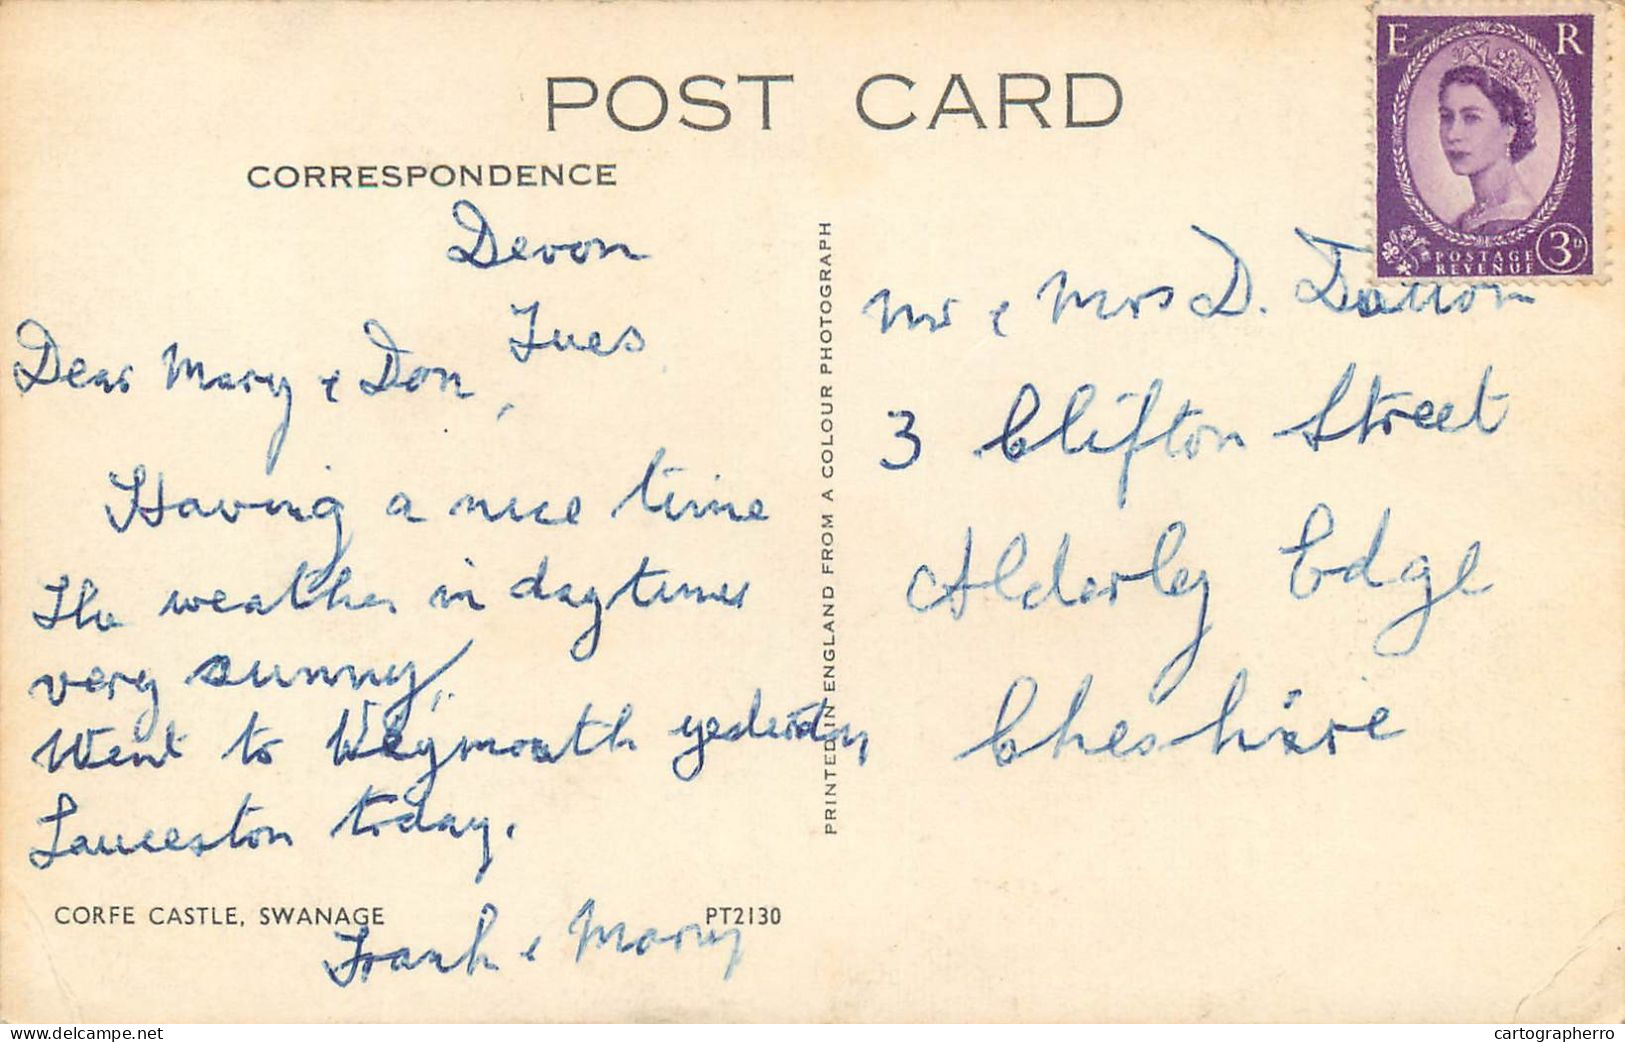 POST CARD
CORRESPONDENCE
Devon
Tues
Dear Mary & Don,
Having a nice time
The weather in daytimes
very sunny,
Went to Weymouth yederday
Lauceston today.
Frank & Mary
CORFE CASTLE, SWANAGE
PT2130
PRINTED IN ENGLAND FROM A COLOUR PHOTOGRAPH
E R
POSTAGE
REVENUE
3D
Mr & Mrs D.
3 Clifton Street
Alderley Edge
Cheshire
delcampe.net
cartographerro